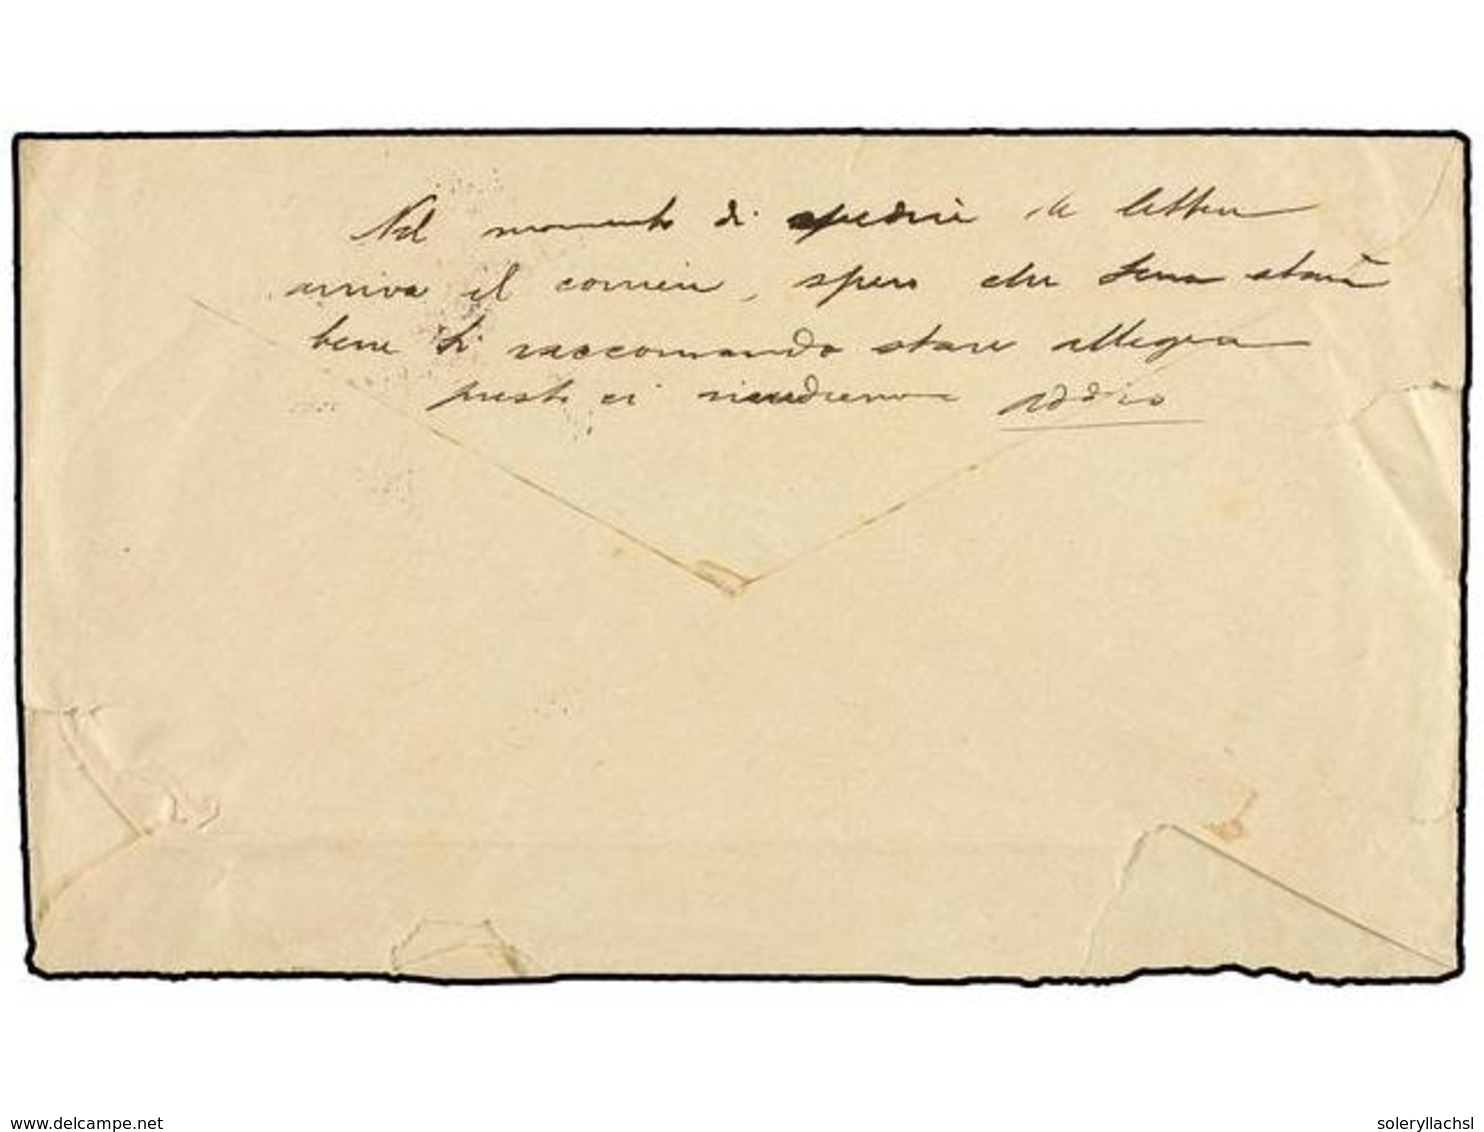 Nel momento di spedire la lettera
arriva il corriere, spero che starai
bene ti raccomando stare allegra
presto ci rivedremo addio
delcampe.net
soleryllachsl